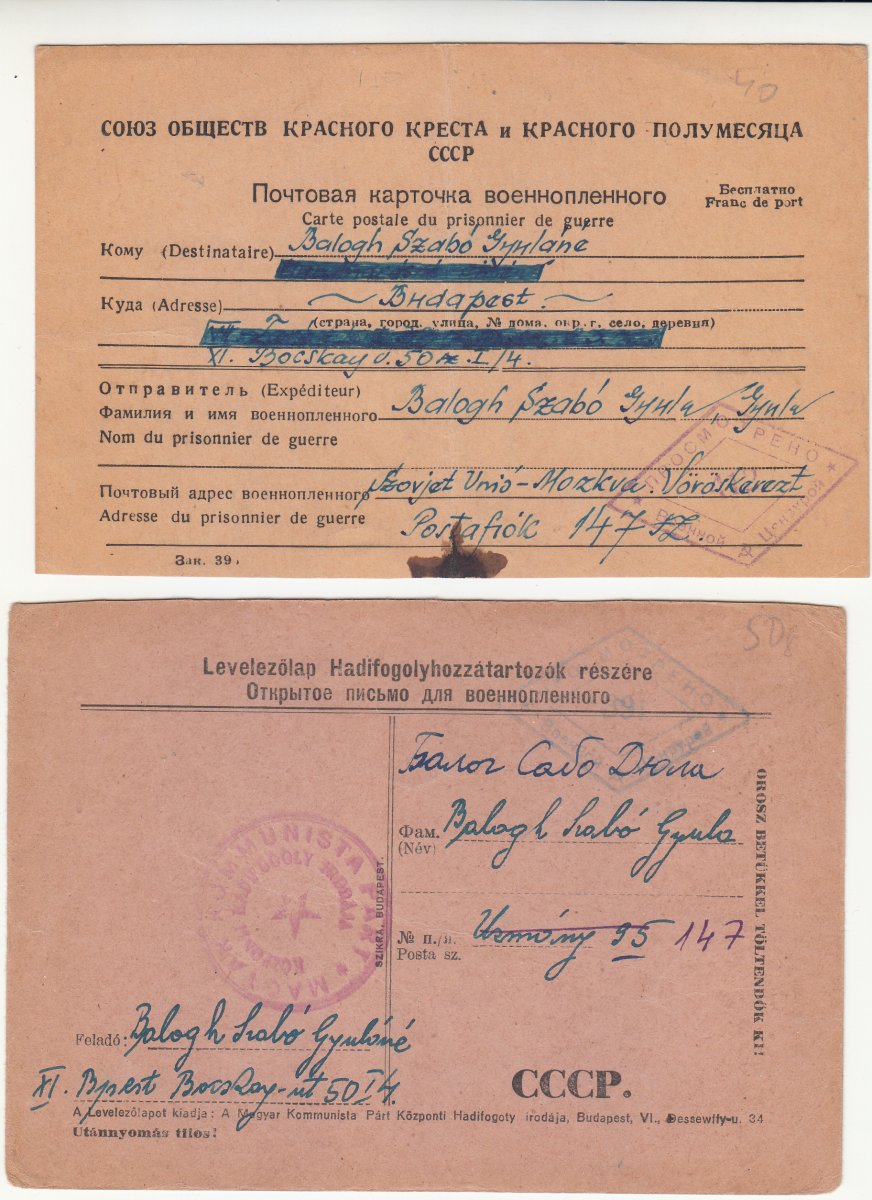 40
СОЮЗ ОБЩЕСТВ КРАСНОГО КРЕСТА и КРАСНОГО ПОЛУМЕСЯЦА
СССР
Почтовая карточка военнопленного
Бесплатно
Franc de port
Carte postale du prisonnier de guerre
Кому (Destinataire) Balogh Szabó Gyuláné
Куда (Adresse) ~ Budapest. ~
(страна, город, улица, № дома, окр. г. село, деревня)
XI. Bocskay u. 50 I/4.
Отправитель (Expéditeur)
Фамилия и имя военнопленного Balogh Szabó Gyula, Gyula
Nom du prisonnier de guerre
ПРОСМОТРЕНО
Военной Цензурой
Почтовый адрес военнопленного Szovjet Unió-Mozkva. Vöröskerezt
Adresse du prisonnier de guerre Postafiók 147
Зак. 39
Levelezőlap Hadifogolyhozzátartozók részére
Открытое письмо для военнопленного
ПРОСМОТРЕНО
Балог Сабо Дюла
Фам. Balogh Szabó Gyula
(Név)
№ п./я. Uzmány 95 147
Posta sz.
OROSZ BETŰKKEL TÖLTENDŐK KI!
SZIKRA, BUDAPEST.
MAGYAR KOMMUNISTA PÁRT
KÖZPONTI HADIFOGOLY IRODÁJA
Feladó: Balogh Szabó Gyuláné
XI. Bpest Bocskay-út 50 I 4.
СССР.
A Levelezőlapot kiadja: A Magyar Kommunista Párt Központi Hadifogoty irodája, Budapest, VI., Dessewffy-u. 34
Utánnyomás tilos!